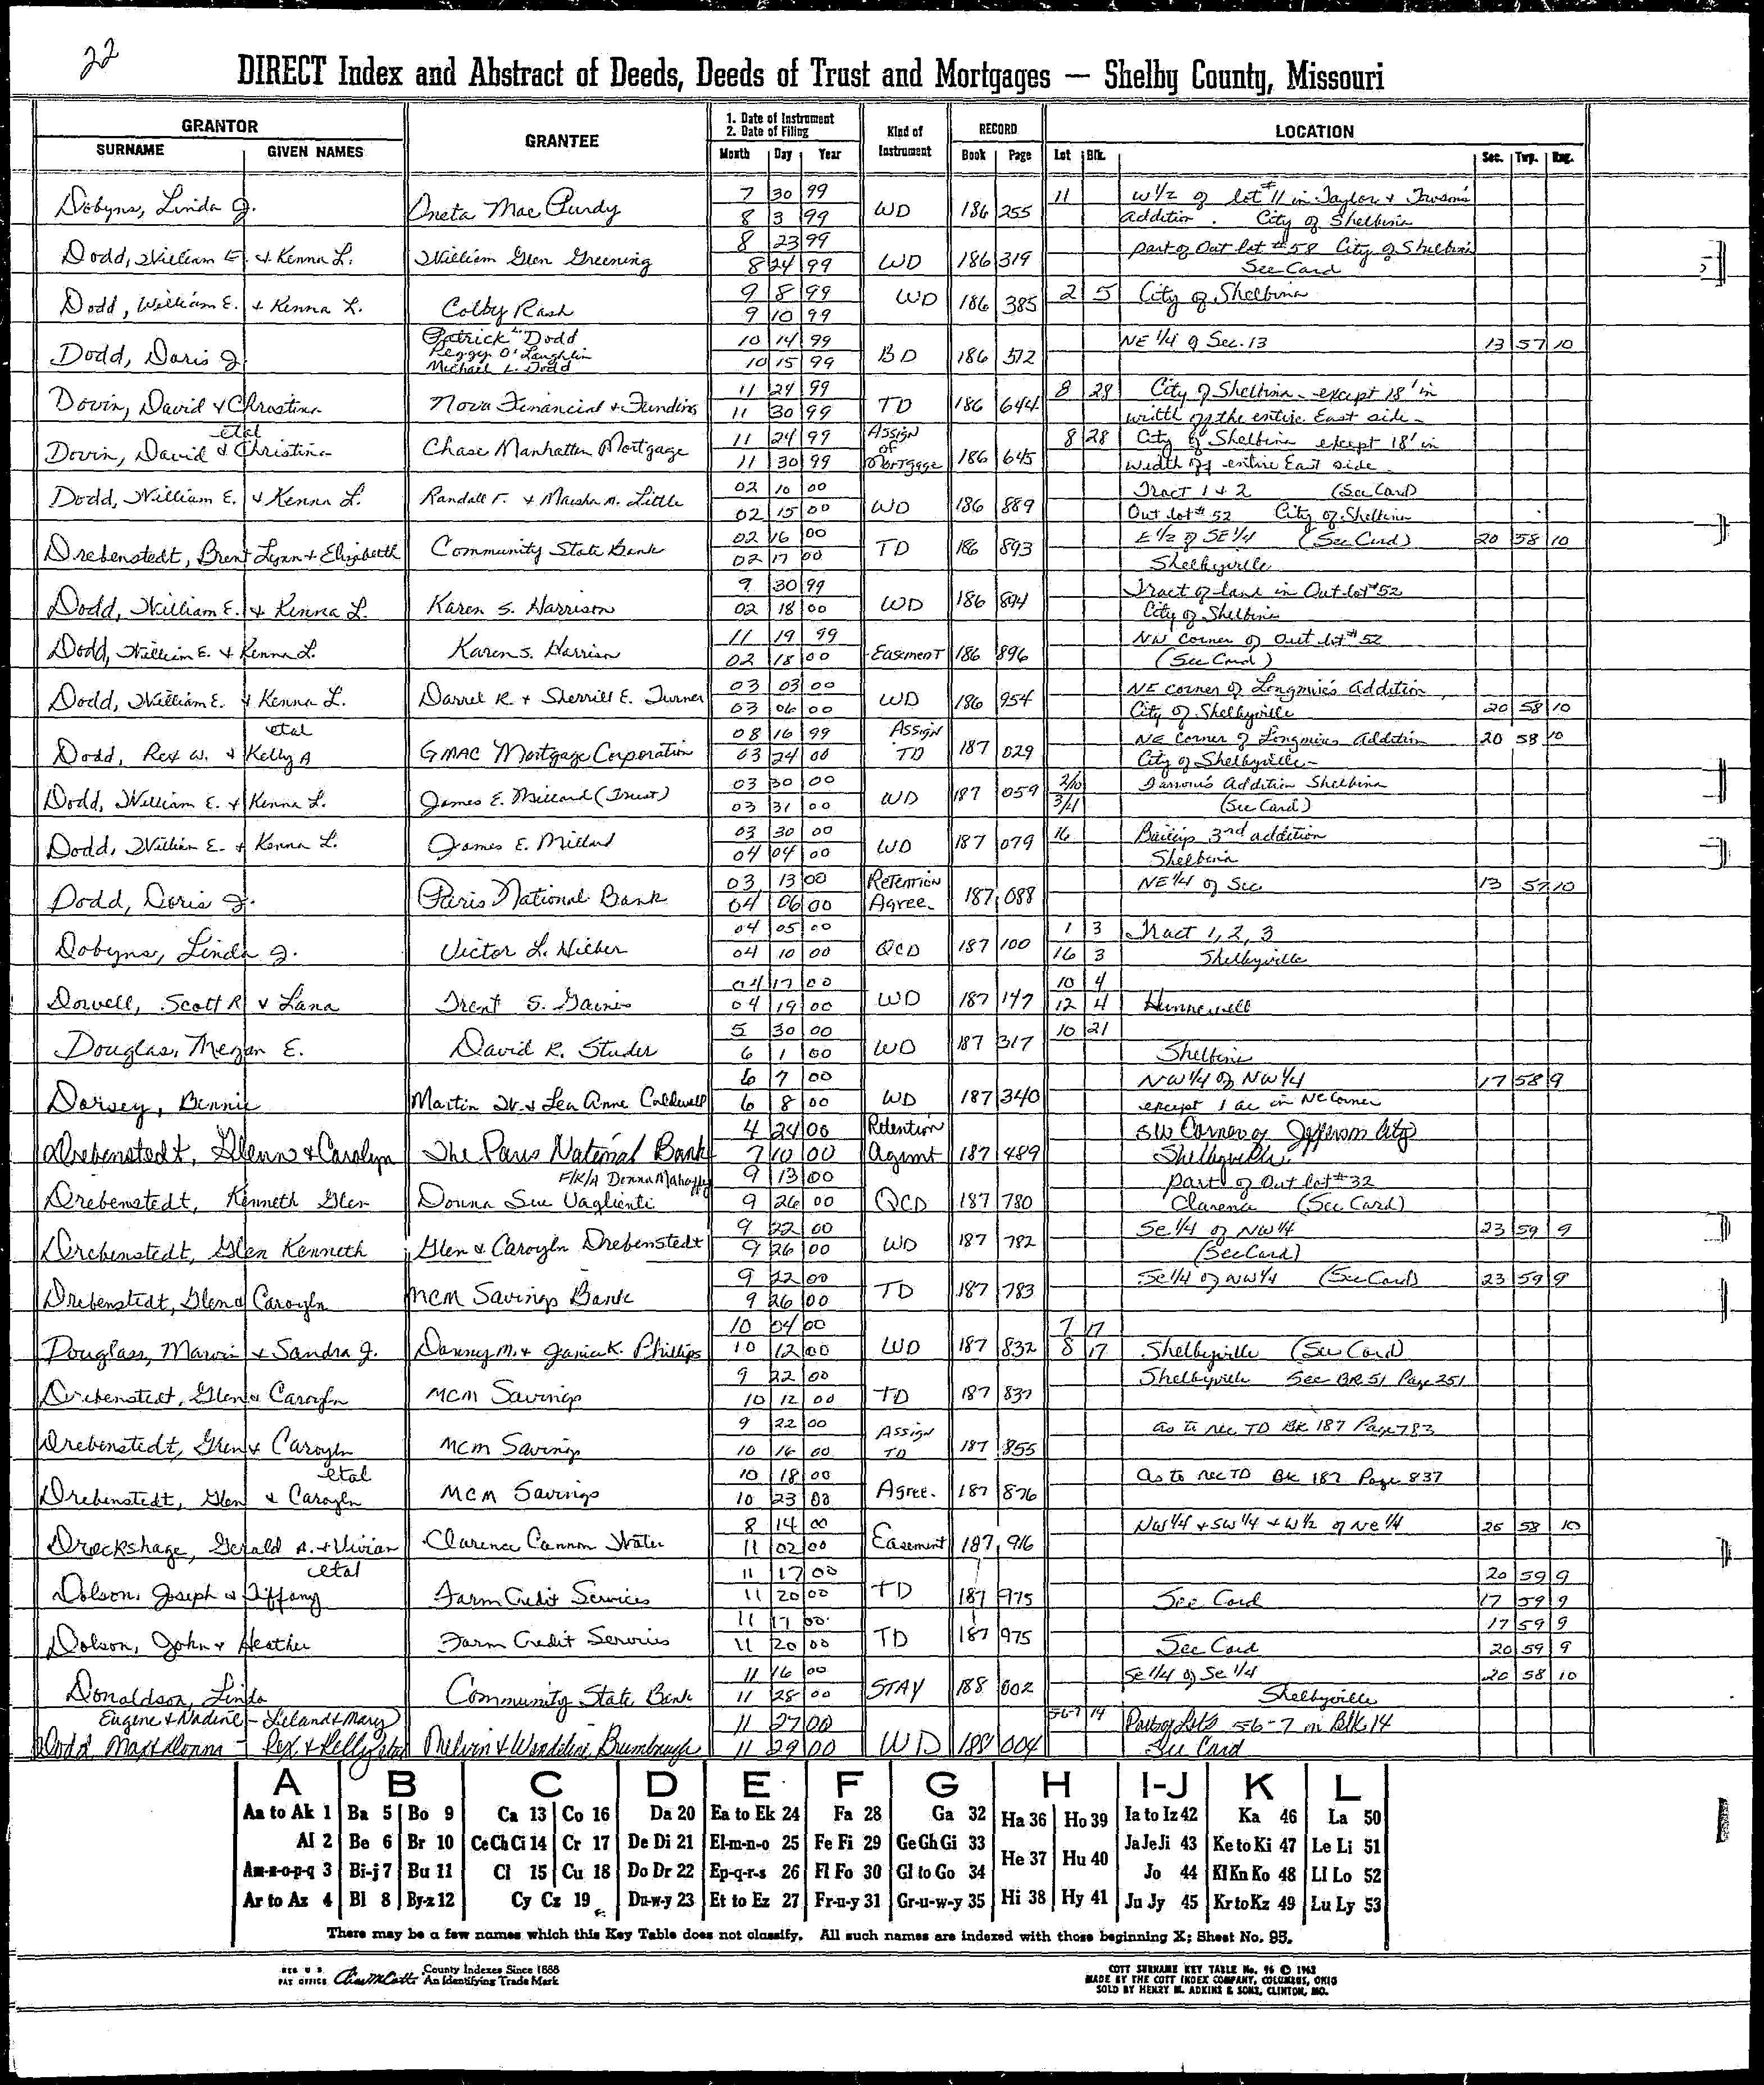 22
DIRECT Index and Abstract of Deeds, Deeds of Trust and Mortgages — Shelby County, Missouri
GRANTOR
SURNAME GIVEN NAMES
GRANTEE
1. Date of Instrument
2. Date of Filing
Month Day Year
Kind of Instrument
RECORD
Book Page
LOCATION
Lot Blk. Sec. Twp. Rng.
Dobyns, Linda J. Oneta Mae Purdy 7 30 99 WD 186 255 11 W 1/2 of lot #11 in Taylor &
8 3 99 addition. City of Shelbina
Dodd, William E. & Kenna L. William Glen Greening 8 23 99 WD 186 319 part of Out lot #58 City of Shelbina
8 24 99 See Card
Dodd, William E. & Kenna L. Colby Rash 9 8 99 WD 186 385 2 5 City of Shelbina
9 10 99
Dodd, Doris J. Patrick L. Dodd 10 14 99 BD 186 572 NE 1/4 of Sec. 13 13 57 10
Peggy O'Laughlin
Michael L. Dodd 10 15 99
Dovin, David & Christina Nova Financial & Funding 11 24 99 TD 186 644 8 28 City of Shelbina - except 18' in
11 30 99 width off the entire East side -
etal
Dovin, David & Christina Chase Manhattan Mortgage 11 24 99 Assign of Mortgage 186 645 8 28 City of Shelbina except 18' in
11 30 99 width off entire East side
Dodd, William E. & Kenna L. Randall F. & Marsha A. Little 02 10 00 WD 186 889 Tract 1 & 2 (See Card)
02 15 00 Out lot #52 City of Shelbina
Drebenstedt, Brent Lynn & Elizabeth Community State Bank 02 16 00 TD 186 893 E 1/2 of SE 1/4 (See Card) 20 58 10
02 17 00 Shelbyville
Dodd, William E. & Kenna L. Karen S. Harrison 9 30 99 WD 186 894 Tract of land in Out lot #52
02 18 00 City of Shelbina
Dodd, William E. & Kenna L. Karen S. Harrison 11 19 99 Easement 186 896 NW corner of Out lot #52
02 18 00 (See Card)
Dodd, William E. & Kenna L. Darrel R. & Sherrill E. Turner 03 03 00 WD 186 954 NE corner of Longmire's Addition,
03 06 00 City of Shelbyville 20 58 10
etal
Dodd, Rex W. & Kelly A GMAC Mortgage Corporation 08 16 99 Assign TD 187 029 NE Corner of Longmires Addition 20 58 10
03 24 00 City of Shelbyville -
Dodd, William E. & Kenna L. James E. Millard (Trust) 03 30 00 WD 187 059 2/10 Addition Shelbina
03 31 00 (See Card)
Dodd, William E. & Kenna L. James E. Millard 03 30 00 WD 187 079 16 3rd addition
04 04 00 Shelbina
Dodd, Doris J. Paris National Bank 03 13 00 Retention Agree. 187 088 NE 1/4 of Sec 13 57 10
04 06 00
Dobyns, Linda J. Victor L. 04 05 00 QCD 187 100 1 3 Tract 1, 2, 3
04 10 00 16 3 Shelbyville
Dowell, Scott R & Lana Trent S. Gaines 04 17 00 WD 187 147 10 4
04 19 00 12 4 Hunnewell
Douglas, Megan E. David R. Studer 5 30 00 WD 187 317 10 21
6 1 00 Shelbina
Dorsey, Bennie Martin W. & Lea Anne Caldwell 6 7 00 WD 187 340 NW 1/4 of NW 1/4 17 58 9
6 8 00 except 1 ac in NE Corner
Drebenstedt, Glenn & Carolyn The Paris National Bank 4 24 00 Retention Agmt 187 489 SW Corner of Jefferson
7 10 00 Shelbyville.
F/K/A Donna Mahaffy
Drebenstedt, Kenneth Glen Donna Sue Vaglienti 9 13 00 QCD 187 780 part of Out lot #32
9 26 00 Clarence (See Card)
Drebenstedt, Glen Kenneth Glen & Caroyln Drebenstedt 9 22 00 WD 187 782 SE 1/4 of NW 1/4 23 59 9
9 26 00 (See Card)
Drebenstedt, Glen & Caroyln MCM Savings Bank 9 22 00 TD 187 783 SE 1/4 of NW 1/4 (See Card) 23 59 9
9 26 00
Douglass, Marvin & Sandra J. Danny M. & Janice K. Phillips 10 04 00 WD 187 832 7 17
10 12 00 8 17 Shelbyville (See Card)
Drebenstedt, Glen & Caroyln MCM Savings 9 22 00 TD 187 837 Shelbyville See BK 51 Page 251
10 12 00
Drebenstedt, Glen & Caroyln MCM Savings 9 22 00 Assign TD 187 855 as to rec TD BK 187 Page 783
10 16 00
etal
Drebenstedt, Glen & Caroyln MCM Savings 10 18 00 Agree. 187 876 as to rec TD BK 187 Page 837
10 23 00
Dreckshage, Gerald A. & Vivian Clarence Cannon Water 8 14 00 Easement 187 916 NW 1/4 & SW 1/4 & W 1/2 of NE 1/4 26 58 10
11 02 00
etal
Dolson, Joseph & Tiffany Farm Credit Services 11 17 00 TD 187 975 20 59 9
11 20 00 See Card 17 59 9
Dolson, John & Heather Farm Credit Services 11 17 00 TD 187 975 17 59 9
11 20 00 See Card 20 59 9
Donaldson, Linda Community State Bank 11 16 00 STAY 188 002 SE 1/4 of SE 1/4 20 58 10
11 28 00 Shelbyville
Eugene & Nadine - Leland & Mary 11 27 00 5-6-7 14 Part of Lots 5-6-7 in Blk 14
Dodd Max & Donna - Rex & Kelly etal Melvin & Wendeline Brumbaugh 11 29 00 WD 188 004 See Card
A B C D E F G H I-J K L
Aa to Ak 1 Ba 5 Bo 9 Ca 13 Co 16 Da 20 Ea to Ek 24 Fa 28 Ga 32 Ha 36 Ho 39 Ia to Iz 42 Ka 46 La 50
Al 2 Be 6 Br 10 Ce Ch Ci 14 Cr 17 De Di 21 El-m-n-o 25 Fe Fi 29 Ge Gh Gi 33 He 37 Hu 40 Ja Je Ji 43 Ke to Ki 47 Le Li 51
Am-n-o-p-q 3 Bi-j 7 Bu 11 Cl 15 Cu 18 Do Dr 22 Ep-q-r-s 26 Fl Fo 30 Gl to Go 34 Jo 44 Kl Kn Ko 48 Ll Lo 52
Ar to Az 4 Bl 8 By-z 12 Cy Cz 19 Du-w-y 23 Et to Ez 27 Fr-u-y 31 Gr-u-w-y 35 Hi 38 Hy 41 Ju Jy 45 Kr to Kz 49 Lu Ly 53
There may be a few names which this Key Table does not classify. All such names are indexed with those beginning X; Sheet No. 95.
REG U. S. PAT OFFICE County Indexes Since 1888
An Identifying Trade Mark
COTT SURNAME KEY TABLE No. 96 © 1963
MADE BY THE COTT INDEX COMPANY, COLUMBUS, OHIO
SOLD BY HENRY M. ADKINS & SONS, CLINTON, MO.